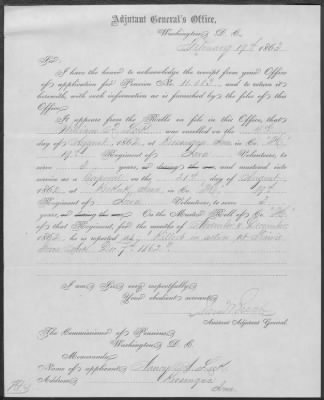 Adjutant General's Office,
Washington, D. C.
February 19th 1863
Sir:
I have the honor to acknowledge the receipt from your Office
of application for Pension No. and to return it
herewith, with such information as is furnished by the files of this
Office.
It appears from the Rolls on file in this Office, that
William was enrolled on the
day of August, 1862, at in Co. "H,"
19th Regiment of Iowa Volunteers, to
serve years, and mustered into
service as a Corporal on the day of August
1862, at Iowa, in Co. "H," 19th
Regiment of Iowa Volunteers, to serve 3
years, On the Muster Roll of Co. "H,"
of that Regiment, for the months of November & December
1862, he is reported as "Killed in action at Prairie
Grove Dec. 7th 1862."
I am, Sir, very respectfully,
Your obedient servant,
Assistant Adjutant General.
The Commissioner of Pensions,
Washington, D. C.
Memoranda.
Name of applicant,
Address,
Iowa.